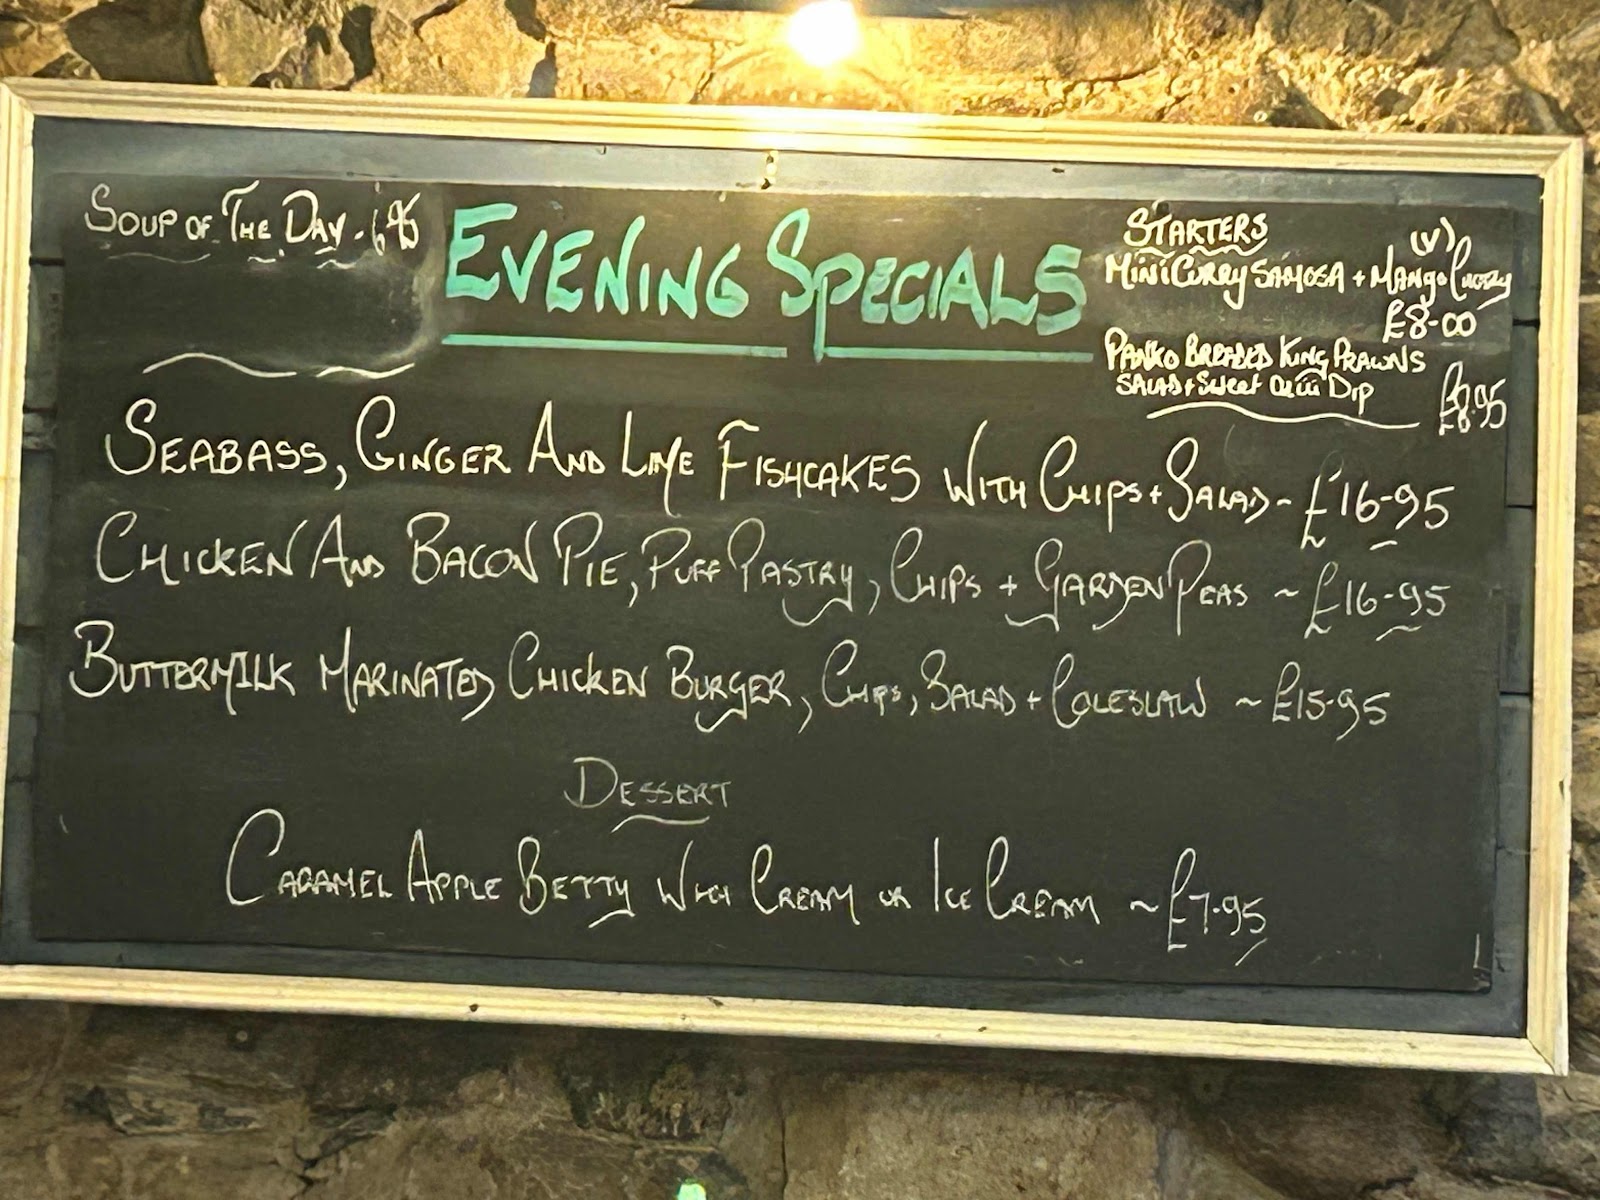 SOUP OF THE DAY . 6.95
EVENING SPECIALS
STARTERS
(V)
MINI CURRY SAMOSA + MANGO CHUTNEY
£8-00
PANKO BREADED KING PRAWNS
SALAD + SWEET CHILLI DIP
£8.95
SEABASS, GINGER AND LIME FISHCAKES WITH CHIPS + SALAD - £16-95
CHICKEN AND BACON PIE, PUFF PASTRY, CHIPS + GARDEN PEAS ~ £16-95
BUTTERMILK MARINATED CHICKEN BURGER, CHIPS, SALAD + COLESLAW ~ £15-95
DESSERT
CARAMEL APPLE BETTY WITH CREAM OR ICE CREAM ~ £7-95